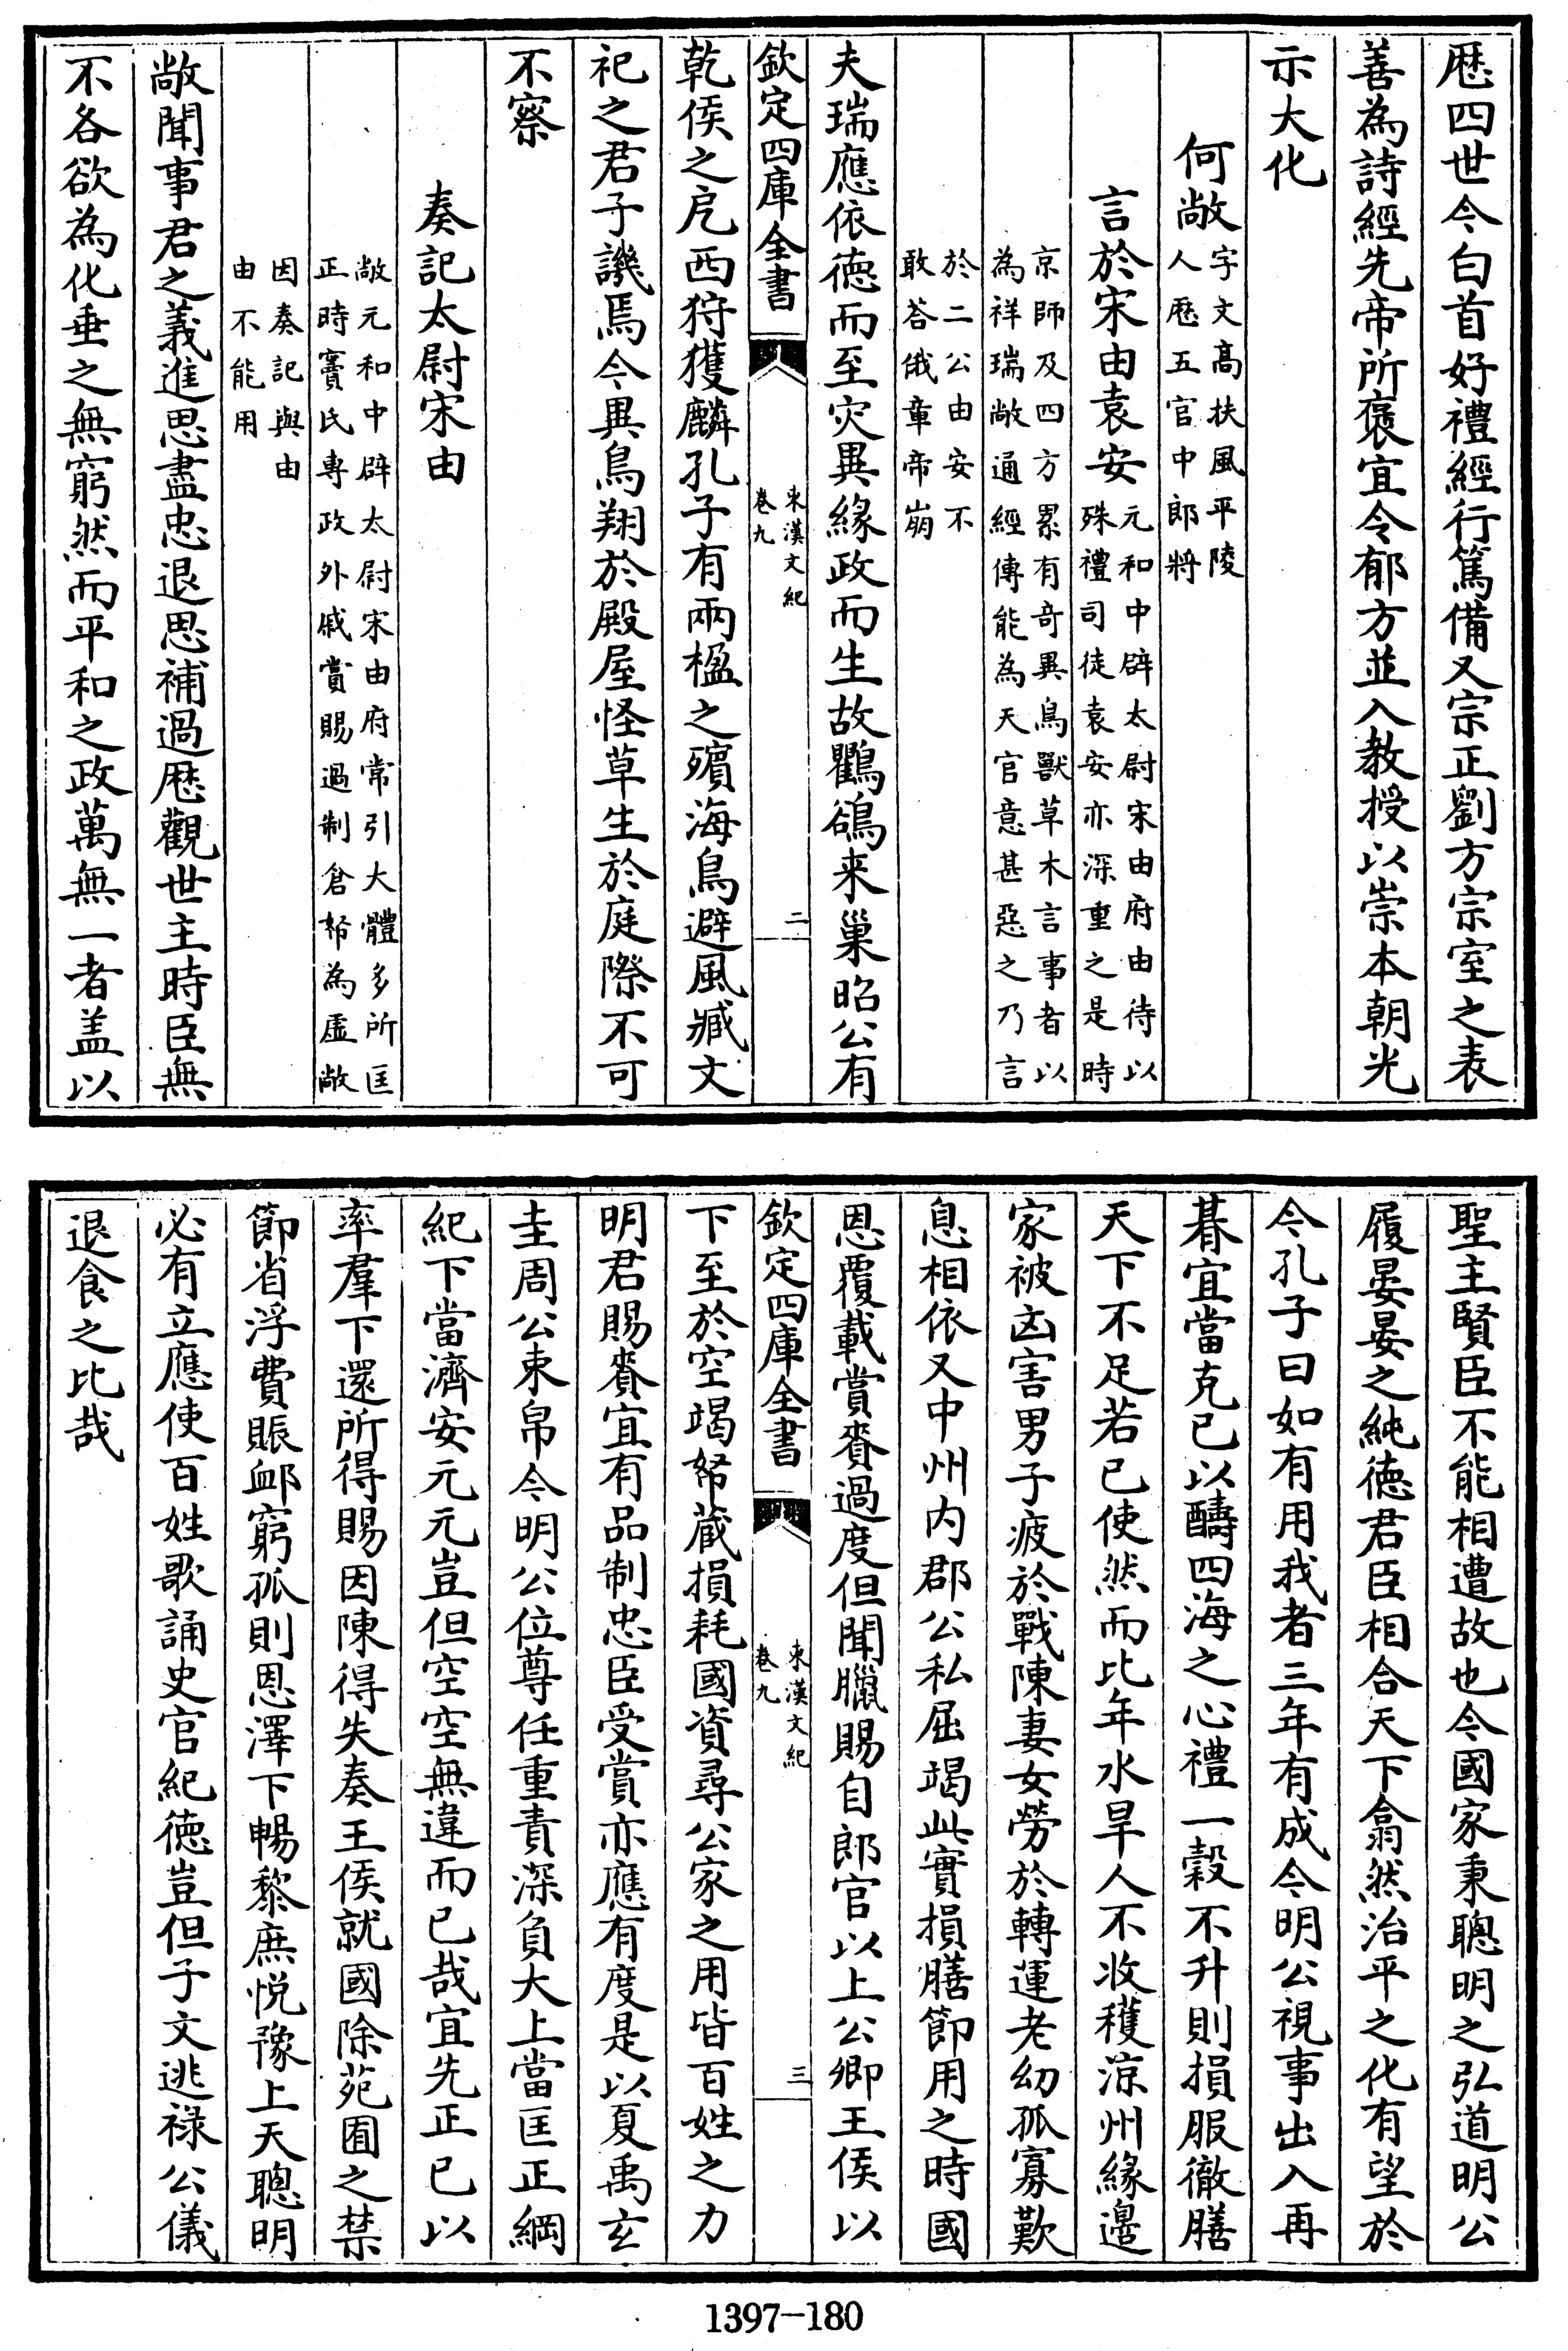 歴四世今白首好禮經行篤備又宗正劉方宗室之表
善為詩經先帝所褒宜令郁方並入教授以崇本朝光
示大化
何敞字文髙扶風平陵
人歴五官中郎將
言於宋由袁安元和中辟太尉宋由府由待以
殊禮司徒袁安亦深重之是時
京師及四方累有奇異鳥獸草木言事者以
為祥瑞敞通經傳能為天官意甚惡之乃言
於二公由安不
敢荅俄章帝崩
夫瑞應依徳而至灾異緣政而生故鸜鵒来巢昭公有
欽定四庫全書
東漢文紀
卷九
二
乾侯之厄西狩獲麟孔子有兩楹之殯海鳥避風臧文
祀之君子譏焉今異鳥翔於殿屋怪草生於庭際不可
不察
奏記太尉宋由
敞元和中辟太尉宋由府常引大體多所匡
正時竇氏専政外戚賞賜過制倉帑為虛敞
因奏記與由
由不能用
敞聞事君之義進思盡忠退思補過歴觀世主時臣無
不各欲為化垂之無窮然而平和之政萬無一者盖以
聖主賢臣不能相遭故也今國家秉聰明之弘道明公
履晏晏之純徳君臣相合天下翕然治平之化有望於
今孔子曰如有用我者三年有成今明公視事出入再
朞宜當克已以醻四海之心禮一穀不升則損服徹膳
天下不足若已使然而比年水旱人不收穫涼州緣邉
家被凶害男子疲於戰陳妻女勞於轉運老幼孤寡歎
息相依又中州内郡公私屈竭此實損膳節用之時國
恩覆載賞賚過度但聞臘賜自郎官以上公卿王侯以
欽定四庫全書
東漢文紀
卷九
三
下至於空竭帑蔵損耗國資尋公家之用皆百姓之力
明君賜賚宜有品制忠臣受賞亦應有度是以夏禹玄
圭周公束帛今明公位尊任重責深負大上當匡正綱
紀下當濟安元元豈但空空無違而已哉宜先正已以
率羣下還所得賜因陳得失奏王侯就國除苑囿之禁
節省浮費賑䘏窮孤則恩澤下暢黎庶悦豫上天聰明
必有立應使百姓歌誦史官紀徳豈但子文逃禄公儀
退食之比哉
1397-180